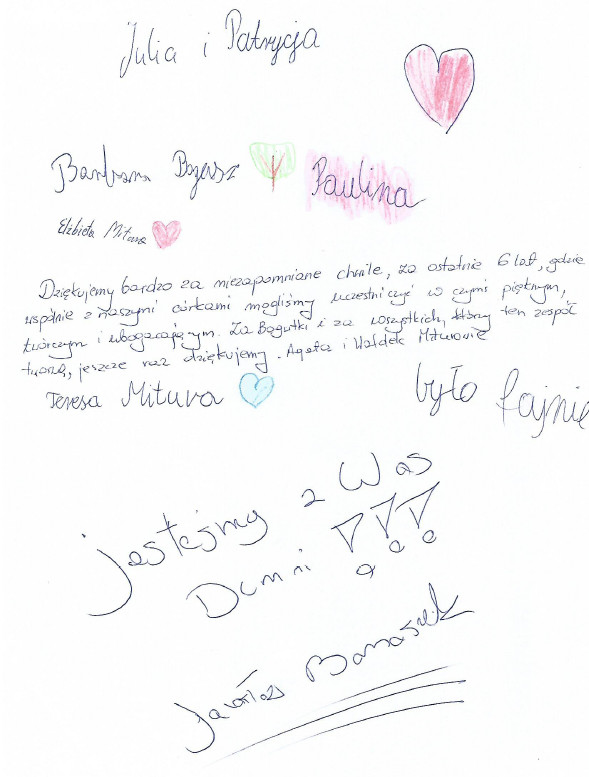 Julia i Patrycja
Barbara Bogusz
Paulina
Elżbieta Mitura
Dziękujemy bardzo za niezapomniane chwile, za ostatnie 6 lat, gdzie
wspólnie z naszymi córkami mogliśmy uczestniczyć w czymś pięknym,
twórczym i ubogacającym. Za Bogutki i za wszystkich, którzy ten zespół
tworzą, jeszcze raz dziękujemy. Agata i Waldek Miturowie
Teresa Mitura
było fajnie
jesteśmy z Was
Dumni !!!
Jarosław Banasek